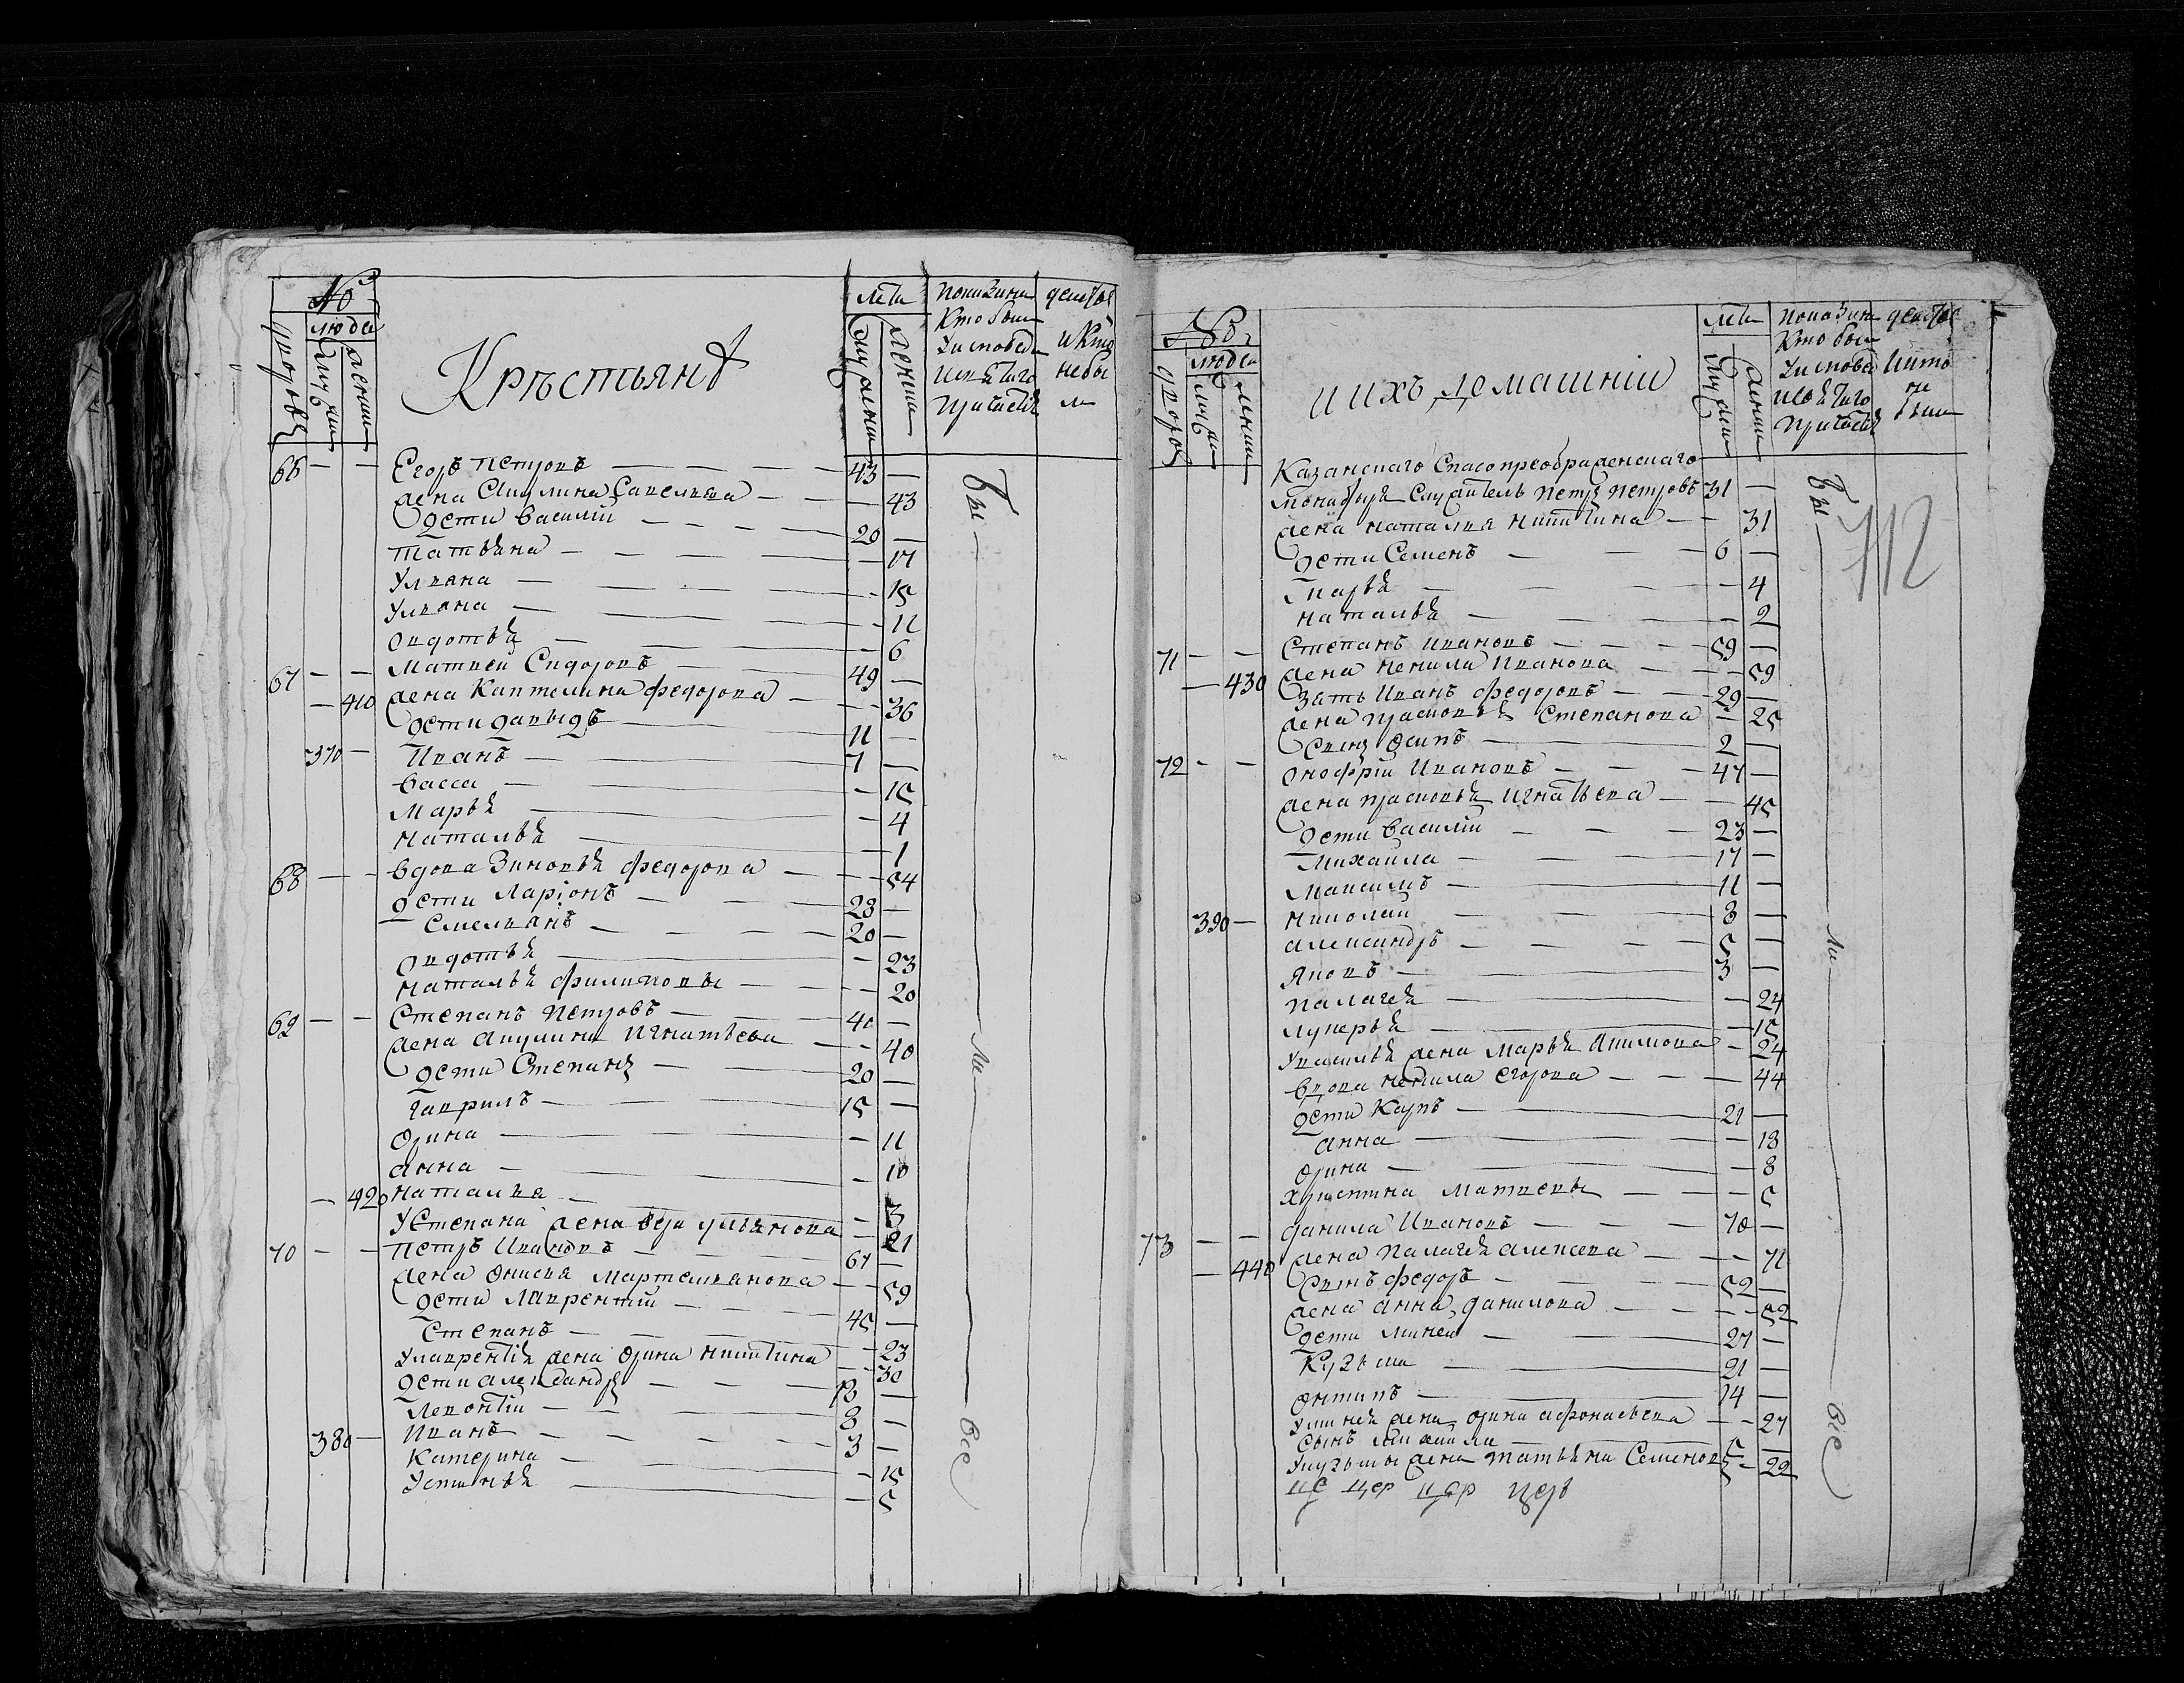 №
люде
дворовъ
муж
женска
Крѣстьянѣ
лѣта
мужска
женска
Показани
Кто был
У исповеди
и святаго
причастія
действ
и кто
не бы
ли
66 — — Егоръ Петровъ — 43 —
жена Акулина Савельева — — 43
Дети Василій — 20 —
Татьяна — — 17
Ульяна — — 15
Ульяна — — 11
Овдотья — — 6
67 — — Матвей Сидоровъ — 49 —
— 410 жена Каптелина Федорова — — 36
Дети Давыдъ — 11 —
370 — Иванъ — 7 —
Васса — — 15
Марья — — 4
Наталья — — 1
68 — — вдова Зиновья Федорова — — 54
Дети Ларіонъ — 23 —
Емельянъ — 20 —
Овдотья — — 23
Наталья Филиповы — — 20
69 — — Степанъ Петровъ — 40 —
жена Акулина Игнатьева — — 40
Дети Степанъ — 20 —
Гаврилъ — 15 —
Орина — — 11
Анна — — 10
— 420 Наталья — — 3
У Степана жена Ульянова — — 21
70 — — Петръ Ивановъ — 67 —
жена Онисья Мартемьянова — — 59
Дети Лаврентій — 45 —
Степанъ — — 23
У Лаврентія жена Орина Никитина — — 30
Дети Александръ — 13 —
Левонтій — 8 —
380 — Иванъ — 3 —
Катерина — — 15
Устинья — — 5
Бы — ли — все
№
люде
дворовъ
муж
женска
и ихъ домашніи
лѣта
мужска
женска
Показани
Кто был
У исповед
и святаго
причастія
действ
и кто
не
были
712
Казанскаго Спасопреображенскаго
монастыря Служитель Петръ Петровъ 31 —
жена Наталья Никитина — — 31
Дети Семенъ — 6 —
Марья — — 4
Наталья — — 2
71 — — Степанъ Ивановъ — 59 —
— 430 жена Ненила Иванова — — 59
Зять Иванъ Федоровъ — 29 —
жена Прасковья Степанова — 25
Сынъ Осипъ — 2 —
72 — — Онофрій Ивановъ — 47 —
жена Прасковья Игнатьева — — 45
Дети Василій — 23 —
Михаила — 17 —
Максимъ — 11 —
390 — Николай — 8 —
Александръ — 5 —
Яковъ — 3 —
Палагея — — 24
Лукерья — — 15
У Василья жена Марья Акимова — 24
Вдова Ненила Егорова — — 44
Дети Карпъ — 21 —
Анна — — 13
Орина — — 8
Христина Матвевы — — 5
73 — — Данила Ивановъ — 70 —
— 440 жена Палагея Алексева — — 71
Сынъ Федоръ — 52 —
жена Анна Данилова — — 52
Дети Миней — 27 —
Кузьма — 21 —
Онтипъ — 14 —
У Минея жена Орина Афонасьева — — 27
Сынъ Михаила — 5 —
У Кузьмы жена Татьяна Семенова — 22
цер цер церв
Бы — ли — все